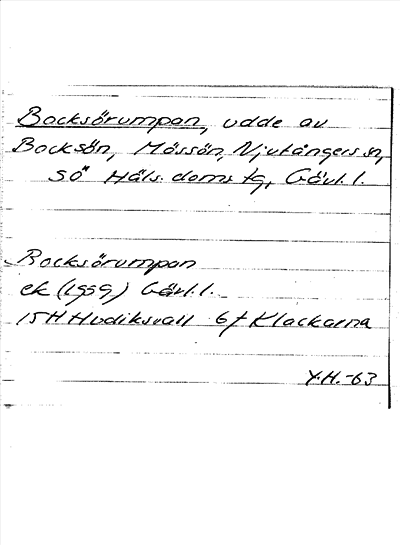 Bocksörumpan, udde av
Bocksön, Mössön, Njutångers sn,
sö Häls. doms tg, Gävl. l.
Bocksörumpan
ek (1959) Gävl. l.
15H Hudiksvall 6f Klackarna
Y.H.-63